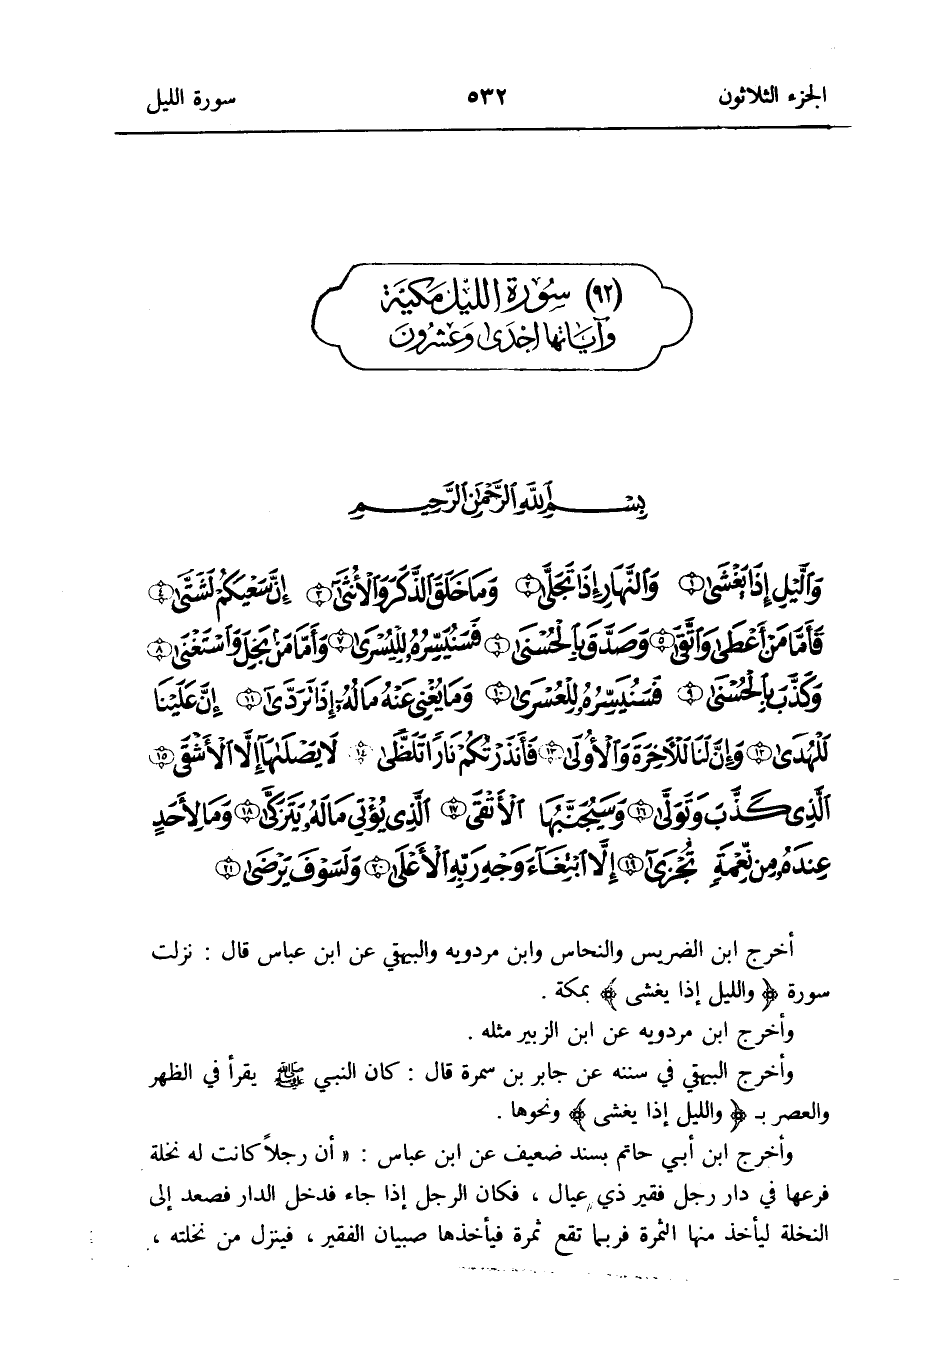 الجزء الثلاثون ٥٣٢ سورة الليل
(٩٢) سورة الليل مكية
وآياتها احدى وعشرون
بِسْمِ اللَّهِ الرَّحْمَٰنِ الرَّحِيمِ
وَٱلَّيْلِ إِذَا يَغْشَىٰ ١ وَٱلنَّهَارِ إِذَا تَجَلَّىٰ ٢ وَمَا خَلَقَ ٱلذَّكَرَ وَٱلْأُنثَىٰٓ ٣ إِنَّ سَعْيَكُمْ لَشَتَّىٰ ٤
فَأَمَّا مَنْ أَعْطَىٰ وَٱتَّقَىٰ ٥ وَصَدَّقَ بِٱلْحُسْنَىٰ ٦ فَسَنُيَسِّرُهُۥ لِلْيُسْرَىٰ ٧ وَأَمَّا مَنۢ بَخِلَ وَٱسْتَغْنَىٰ ٨
وَكَذَّبَ بِٱلْحُسْنَىٰ ٩ فَسَنُيَسِّرُهُۥ لِلْعُسْرَىٰ ١٠ وَمَا يُغْنِى عَنْهُ مَالُهُۥٓ إِذَا تَرَدَّىٰٓ ١١ إِنَّ عَلَيْنَا
لَلْهُدَىٰ ١٢ وَإِنَّ لَنَا لَلْآخِرَةَ وَٱلْأُولَىٰ ١٣ فَأَنذَرْتُكُمْ نَارًا تَلَظَّىٰ ١٤ لَا يَصْلَىٰهَآ إِلَّا ٱلْأَشْقَى ١٥
ٱلَّذِى كَذَّبَ وَتَوَلَّىٰ ١٦ وَسَيُجَنَّبُهَا ٱلْأَتْقَى ١٧ ٱلَّذِى يُؤْتِى مَالَهُۥ يَتَزَكَّىٰ ١٨ وَمَا لِأَحَدٍ
عِندَهُۥ مِن نِّعْمَةٍ تُجْزَىٰٓ ١٩ إِلَّا ٱبْتِغَآءَ وَجْهِ رَبِّهِ ٱلْأَعْلَىٰ ٢٠ وَلَسَوْفَ يَرْضَىٰ ٢١
أخرج ابن الضريس والنحاس وابن مردويه والبيهقي عن ابن عباس قال : نزلت
سورة ﴿ والليل إذا يغشى ﴾ بمكة .
وأخرج ابن مردويه عن ابن الزبير مثله .
وأخرج البيهقي في سننه عن جابر بن سمرة قال : كان النبي ﷺ يقرأ في الظهر
والعصر بـ ﴿ والليل إذا يغشى ﴾ ونحوها .
وأخرج ابن أبي حاتم بسند ضعيف عن ابن عباس : « أن رجلاً كانت له نخلة
فرعها في دار رجل فقير ذي عيال ، فكان الرجل إذا جاء فدخل الدار فصعد إلى
النخلة ليأخذ منها الثمرة فربما تقع ثمرة فيأخذها صبيان الفقير ، فينزل من نخلته ،